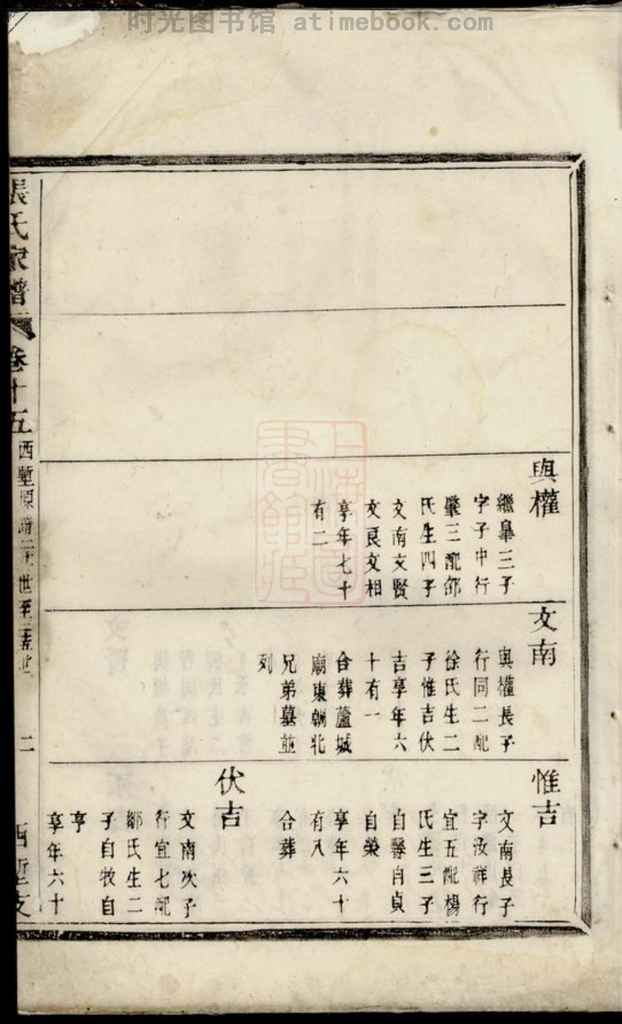 时光图书馆 atimebook.com
與權
繼皋三子
字子中行
肇三配邵
氏生四子
文南文賢
文良文相
享年七十
有二
文南
與權長子
行同二配
徐氏生二
子惟吉伏
吉享年六
十有一
合葬蘆城
廟東朝北
兄弟墓並
列
惟吉
文南長子
字汝祥行
宜五配楊
氏生三子
自馨自貞
自榮
享年六十
有八
合葬
伏吉
文南次子
行宜七配
鄒氏生二
子自牧自
亨
享年六十
張氏家譜
卷十五
西塹
世至
世
二
西塹支
上海圖書館藏